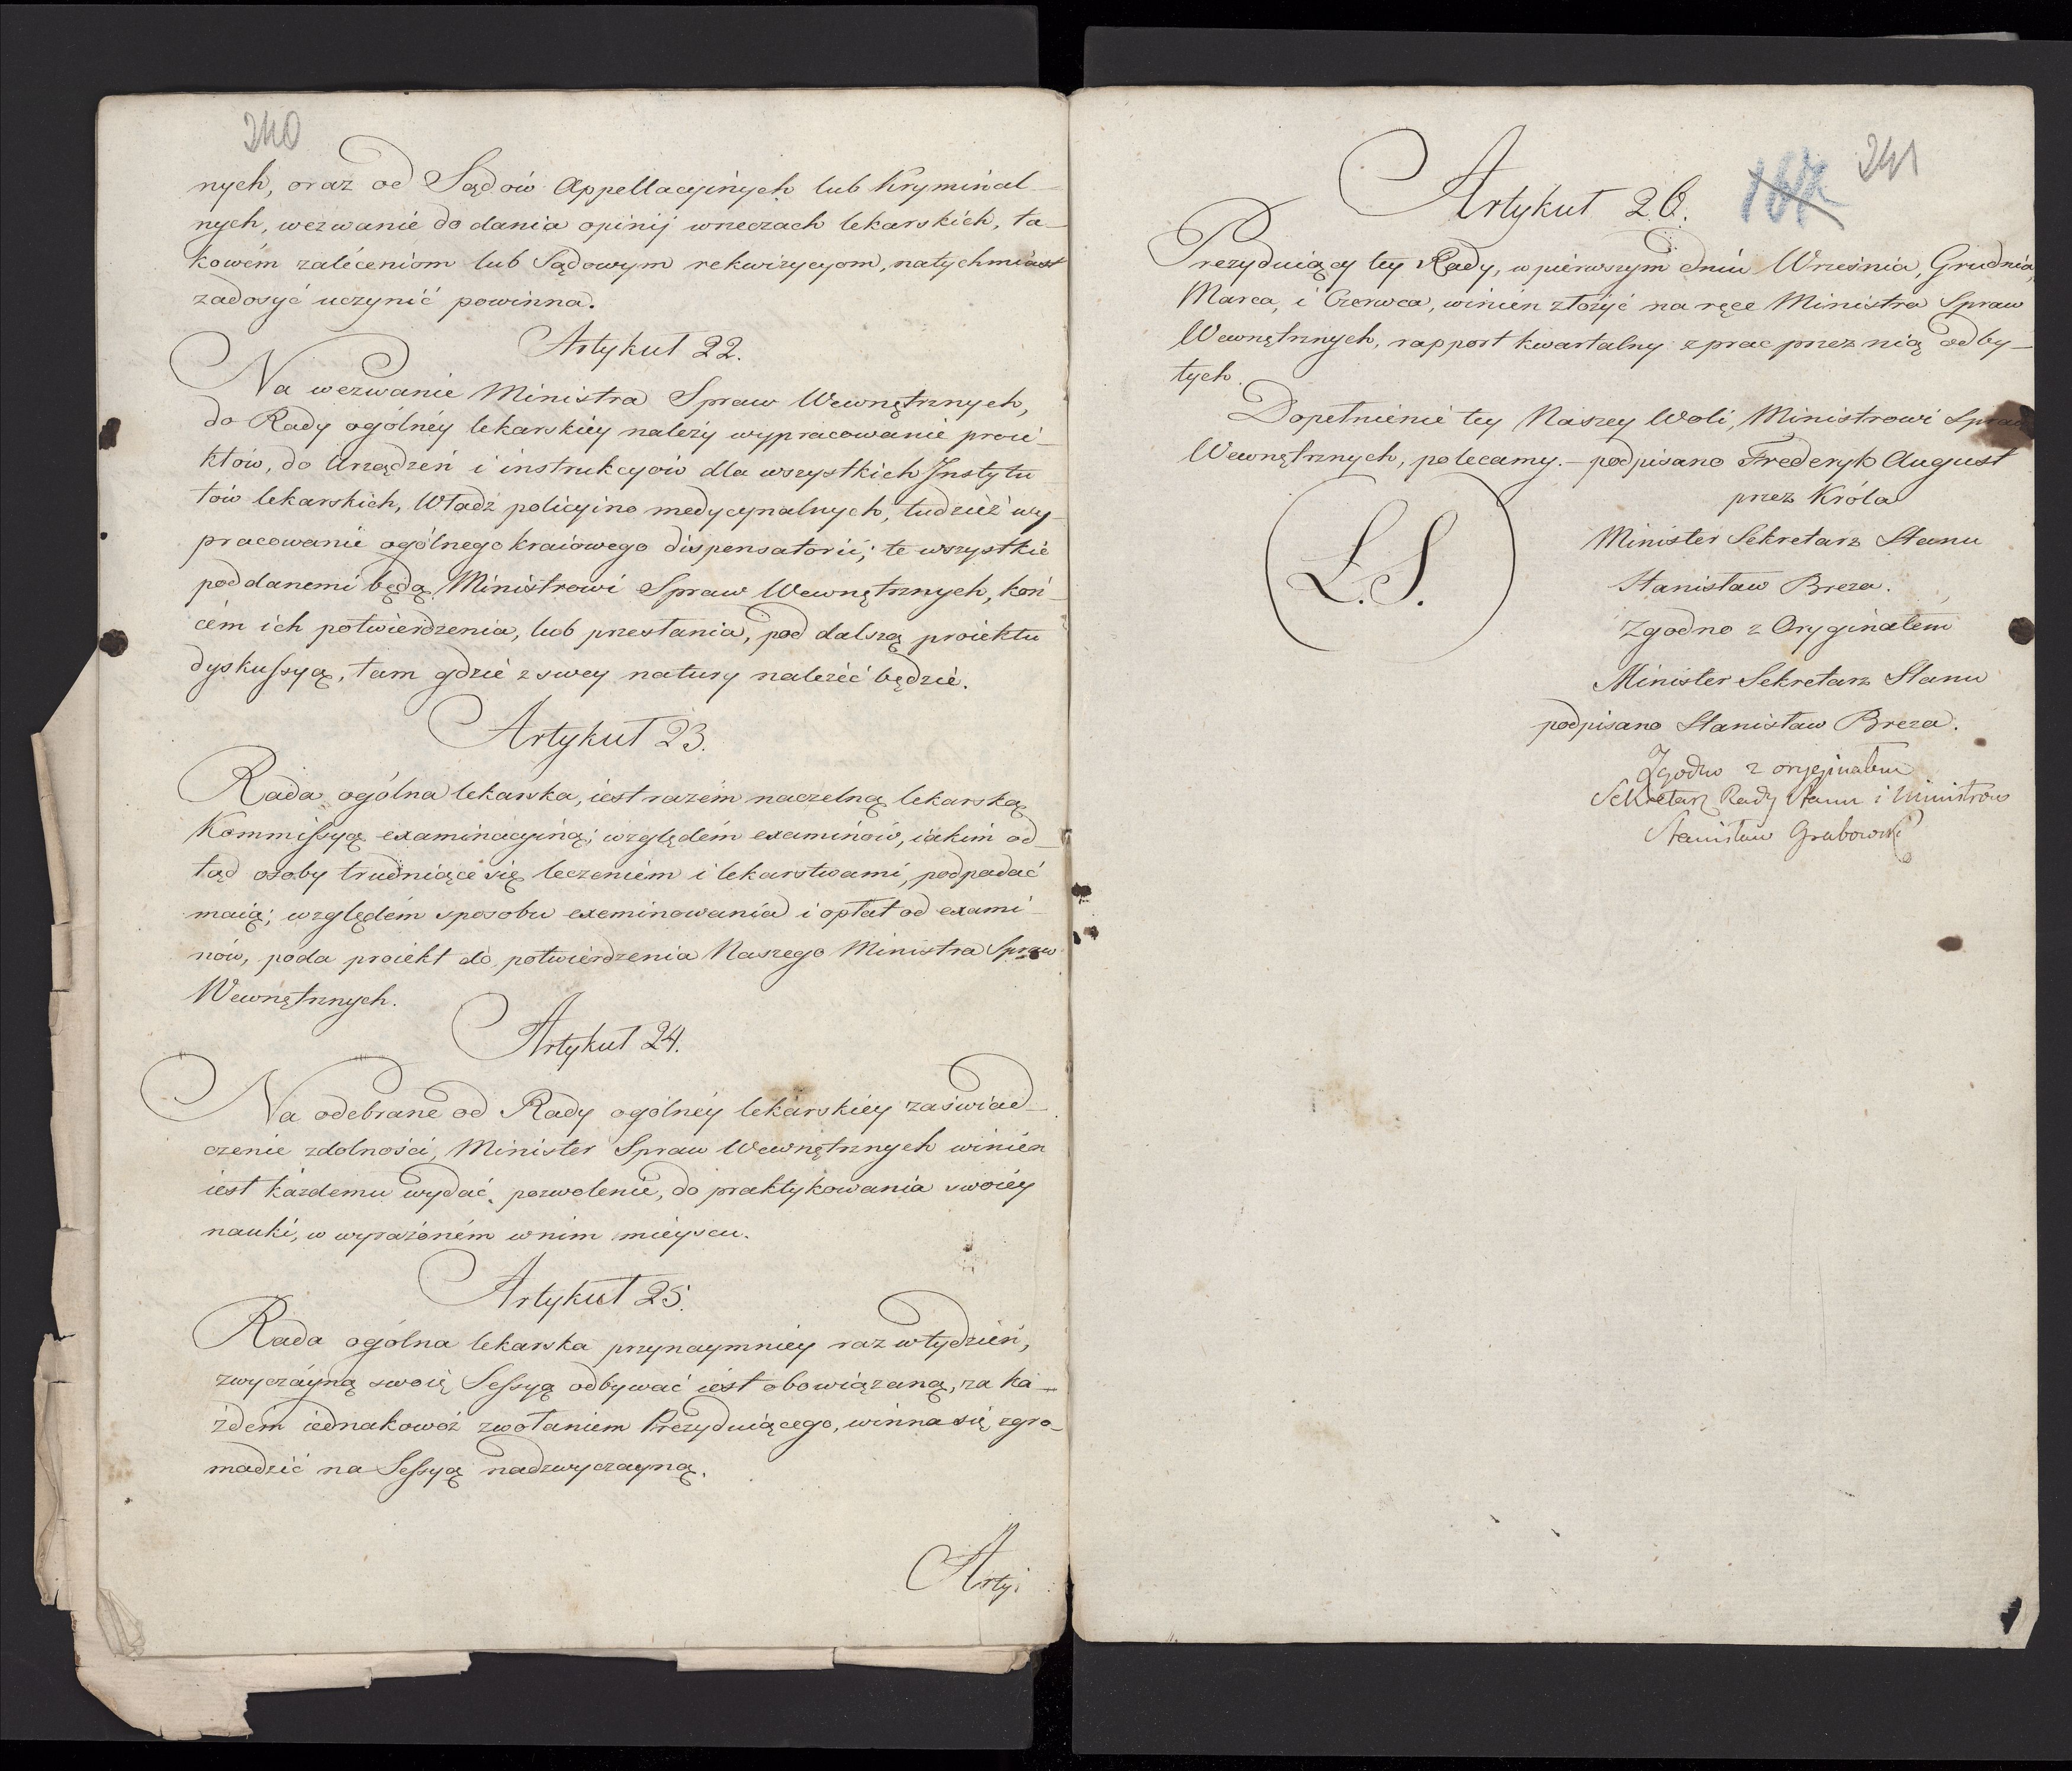 240
nych, oraz od Sądów Appellacyinych lub Kryminal-
nych, wezwanie do dania opinij wrzeczach lekarskich, ta-
kowém zaléceniom lub Sądowym rekwizycyom, natychmiast
zadosyć uczynić powinna.
Artykuł 22.
Na wezwanie Ministra Spraw Wewnętrznych,
do Rady ogólnéy lekarskiéy należy wypracowanie proie-
któw, do Urządzeń i instrukcyów dla wszystkich Instytu
tów lekarskich, Władz policyino medycynalnych, tudzież wy-
pracowanie ogólnego kraiowego dispensatorii; te wszystkie
poddanemi będą Ministrowi Spraw Wewnętrznych, koń-
cém ich potwierdzenia, lub przesłania, pod dalszą proiektu
dyskussyą, tam gdzie z swey natury należéć będzie.
Artykuł 23.
Rada ogólna lekarska, iest razem naczelną lekarską
Kommissyą examinacyiną; względém examinów, iakim od-
tąd osoby trudniące się leczeniem i lekarstwami, podpadać
maią; względém sposobu exeminowania i opłat od exami-
nów, poda proiekt do potwierdzenia Naszego Ministra Spraw
Wewnętrznych.
Artykuł 24.
Na odebrane od Rady ogólnéy lekarskiéy zaświad-
czenie zdolności, Minister Spraw Wewnętrznych winién
iest każdemu wydać pozwolenie, do praktykowania swoiéy
nauki, w wyrażoném wnim mieyscu.
Artykuł 25.
Rada ogólna lekarska przynaymniéy raz wtydzień,
zwyczayną swoię Sessyą odbywać iest obowiązaną, za ka-
żdém iednakowoż zwołaniem Prezyduiącego, winna się zgro-
madzić na Sessyą nadzwyczayną.
Arty:
241
Artykuł 26.
Prezyduiący tey Rady, w piérwszym dniu Września, Grudnia,
Marca, i Czerwca, winién złożyć na ręce Ministra Spraw
Wewnętrznych, rapport kwartalny z prac przez nią odby-
tych.
Dopełnienié tey Naszey Woli, Ministrowi Spraw
Wewnętrznych, polecamy. - podpisano Frederyk August
przez Króla
L.S.
Minister Sekretarz Stanu
Stanisław Breza.
Zgodno z Oryginałem
Minister Sekretarz Stanu
podpisano Stanisław Breza.
Zgodno z oryginałem
Sekretarz Rady Stanu i Ministrów
Stanisław Grabowski